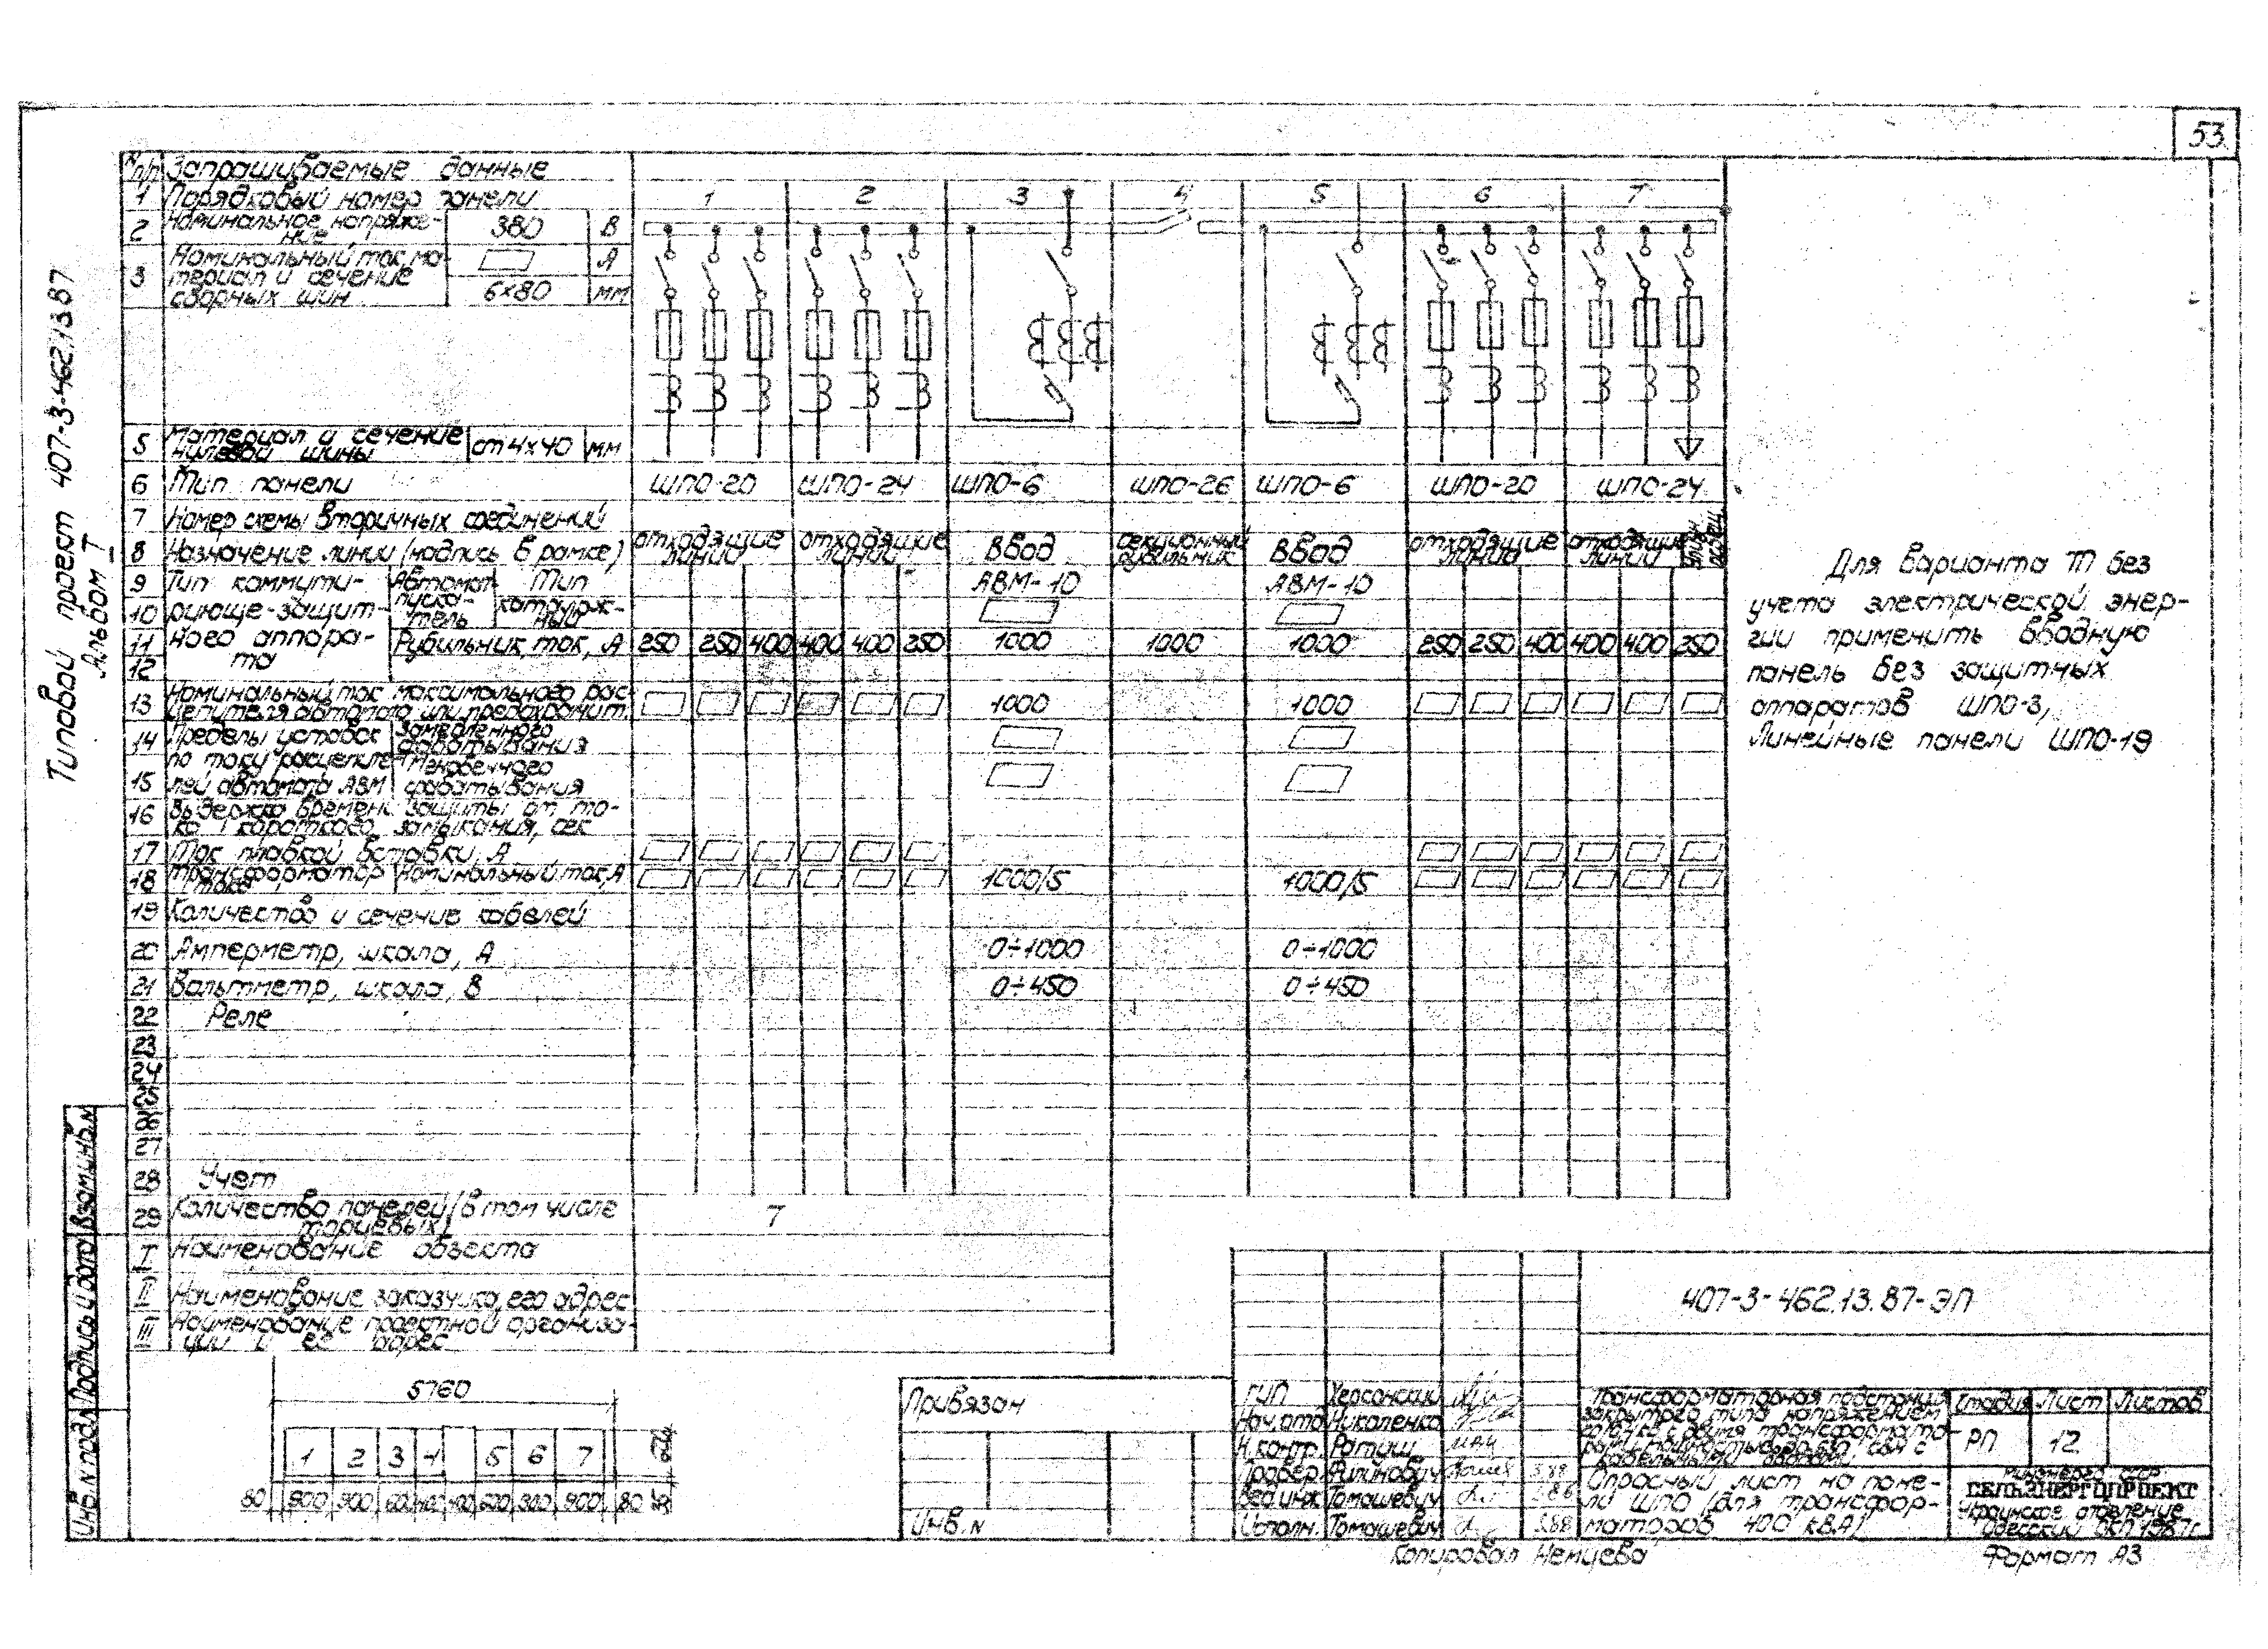 53
Типовой проект 407-3-462.13.87
Альбом I
N п/п Запрашиваемые данные
1 Порядковый номер панели 1 2 3 4 5 6 7
2 Номинальное напряже-
ние 380 В
3 Номинальный ток, ма-
териал и сечение
сборных шин А
6×80 мм
5 Материал и сечение
нулевой шины ст 4×40 мм
6 Тип панели ШПО-20 ШПО-24 ШПО-6 ШПО-26 ШПО-6 ШПО-20 ШПО-24
7 Номер схемы вторичных соединений
8 Назначение линии (надпись в рамке) отходящие линии отходящие линии Ввод секционный рубильник Ввод отходящие линии отходящие линии
9 Тип коммути- Автомат Тип АВМ-10 АВМ-10
10 рующе-защит- пуска-
тель
11 ного аппара- Рубильник, ток, А 250 250 400 400 400 250 1000 1000 1000 250 250 400 400 400 250
12 та
13 Номинальный ток максимального рас-
цепителя автомата или предохранит. 1000 1000
14 Пределы уставок Замедленного
срабатывания
по току расцепите- Мгновенного
15 лей автомата АВМ срабатывания
16 Выдержка времени защиты от то-
ка короткого замыкания, сек
17 Ток плавкой вставки, А
18 Трансформатор
тока Номинальный ток, А 1000/5 1000/5
19 Количество и сечение кабелей
20 Амперметр, шкала, А 0÷1000 0÷1000
21 Вальтметр, шкала, В 0÷450 0÷450
22 Реле
23
24
25
26
27
28 Учет
29 Количество панелей (в том числе
торцевых) 7
I Наименование объекта
II Наименование заказчика, его адрес
III Наименование проектной организа-
ции и её адрес
Для варианта III без
учета электрической энер-
гии применить вводную
панель без защитных
аппаратов ШПО-3,
Линейные панели ШПО-19
5760
1 2 3 4 5 6 7
80 900 900 600 900 80
Привязан
Инв. N
Инв. N подл Подпись и дата Взам. инв. N
407-3-462.13.87-ЭП
ГИП Херсонский
Нач. отд Николенко
Н. контр. Ратуш
Провер. Филинович
Вед. инж Томашевич
Исполн. Томашевич
Трансформаторная подстанция
закрытого типа напряжением
с двумя трансформато-
рами мощностью до 630 кВА с
кабельными вводами
Стадия Лист Листов
РП 12
Опросный лист на пане-
ли ШПО (для трансфор-
маторов 400 кВА)
Минэнерго СССР
СЕЛЬЭНЕРГОПРОЕКТ
Украинское отделение
Одесский ОКП 1987г.
Копировал Немцева
Формат А3